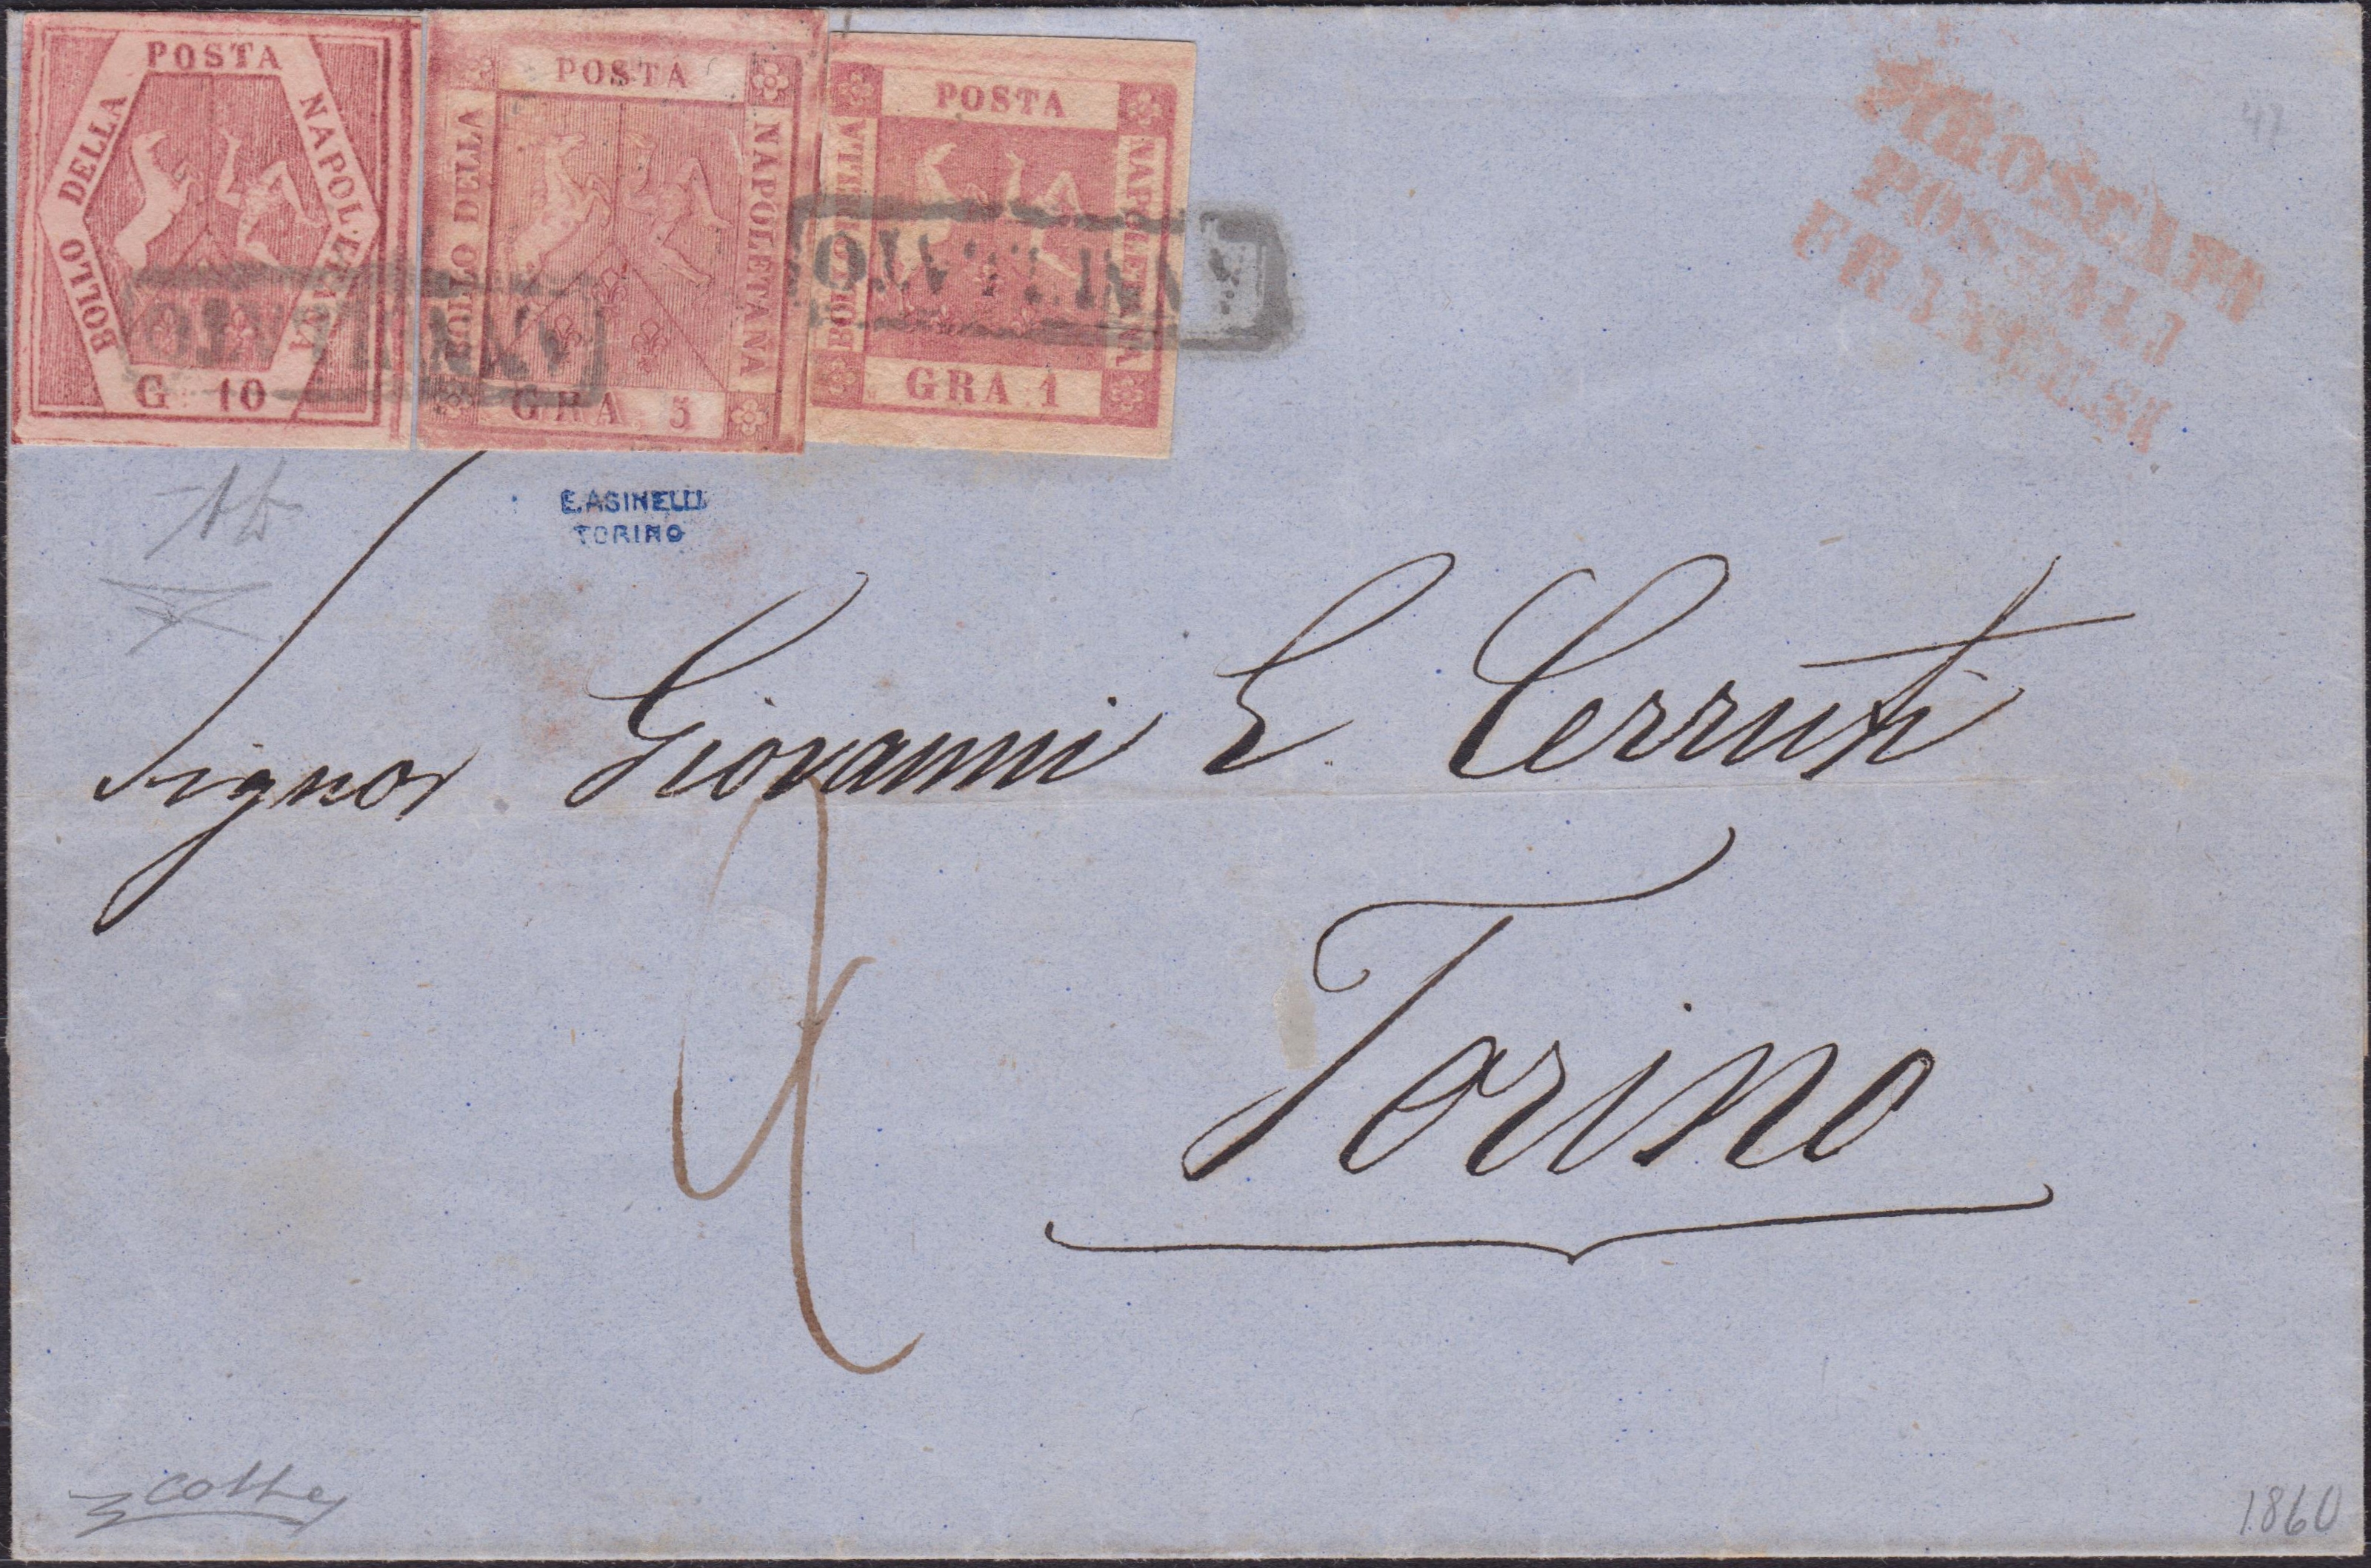 POSTA
BOLLO DELLA
NAPOLETANA
G. 10
POSTA
BOLLO DELLA
NAPOLETANA
GRA. 5
POSTA
BOLLO DELLA
NAPOLETANA
GRA 1
ANNULLATO
ANNULLATO
PIROSCAFO
POSTALI
FRANCESI
E. ASINELLI
TORINO
Signor Giovanni E. Cerruti
Torino
1860